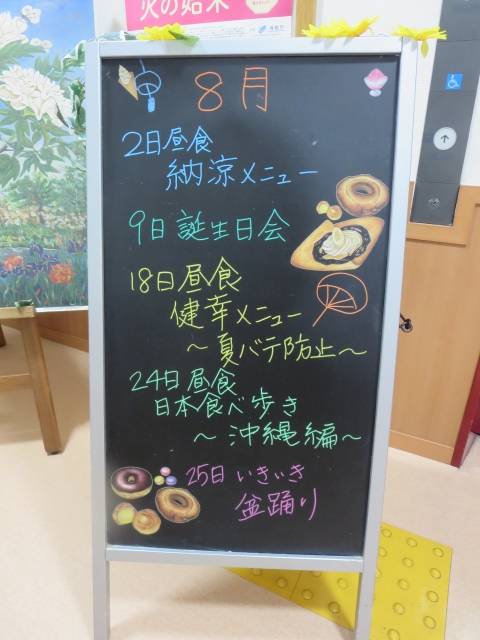 火の始末
8月
2日昼食
納涼メニュー
9日 誕生日会
18日昼食
健幸メニュー
～夏バテ防止～
24日昼食
日本食べ歩き
～沖縄編～
25日 いきいき
盆踊り